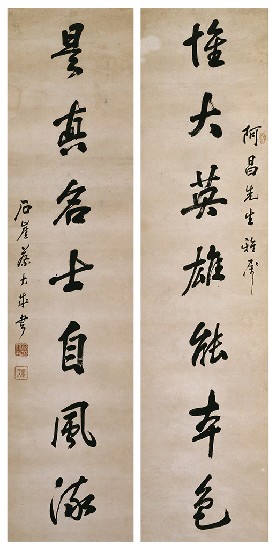 阿昌先生雅屬
惟大英雄能本色
是真名士自風流
石崖蔡大成書